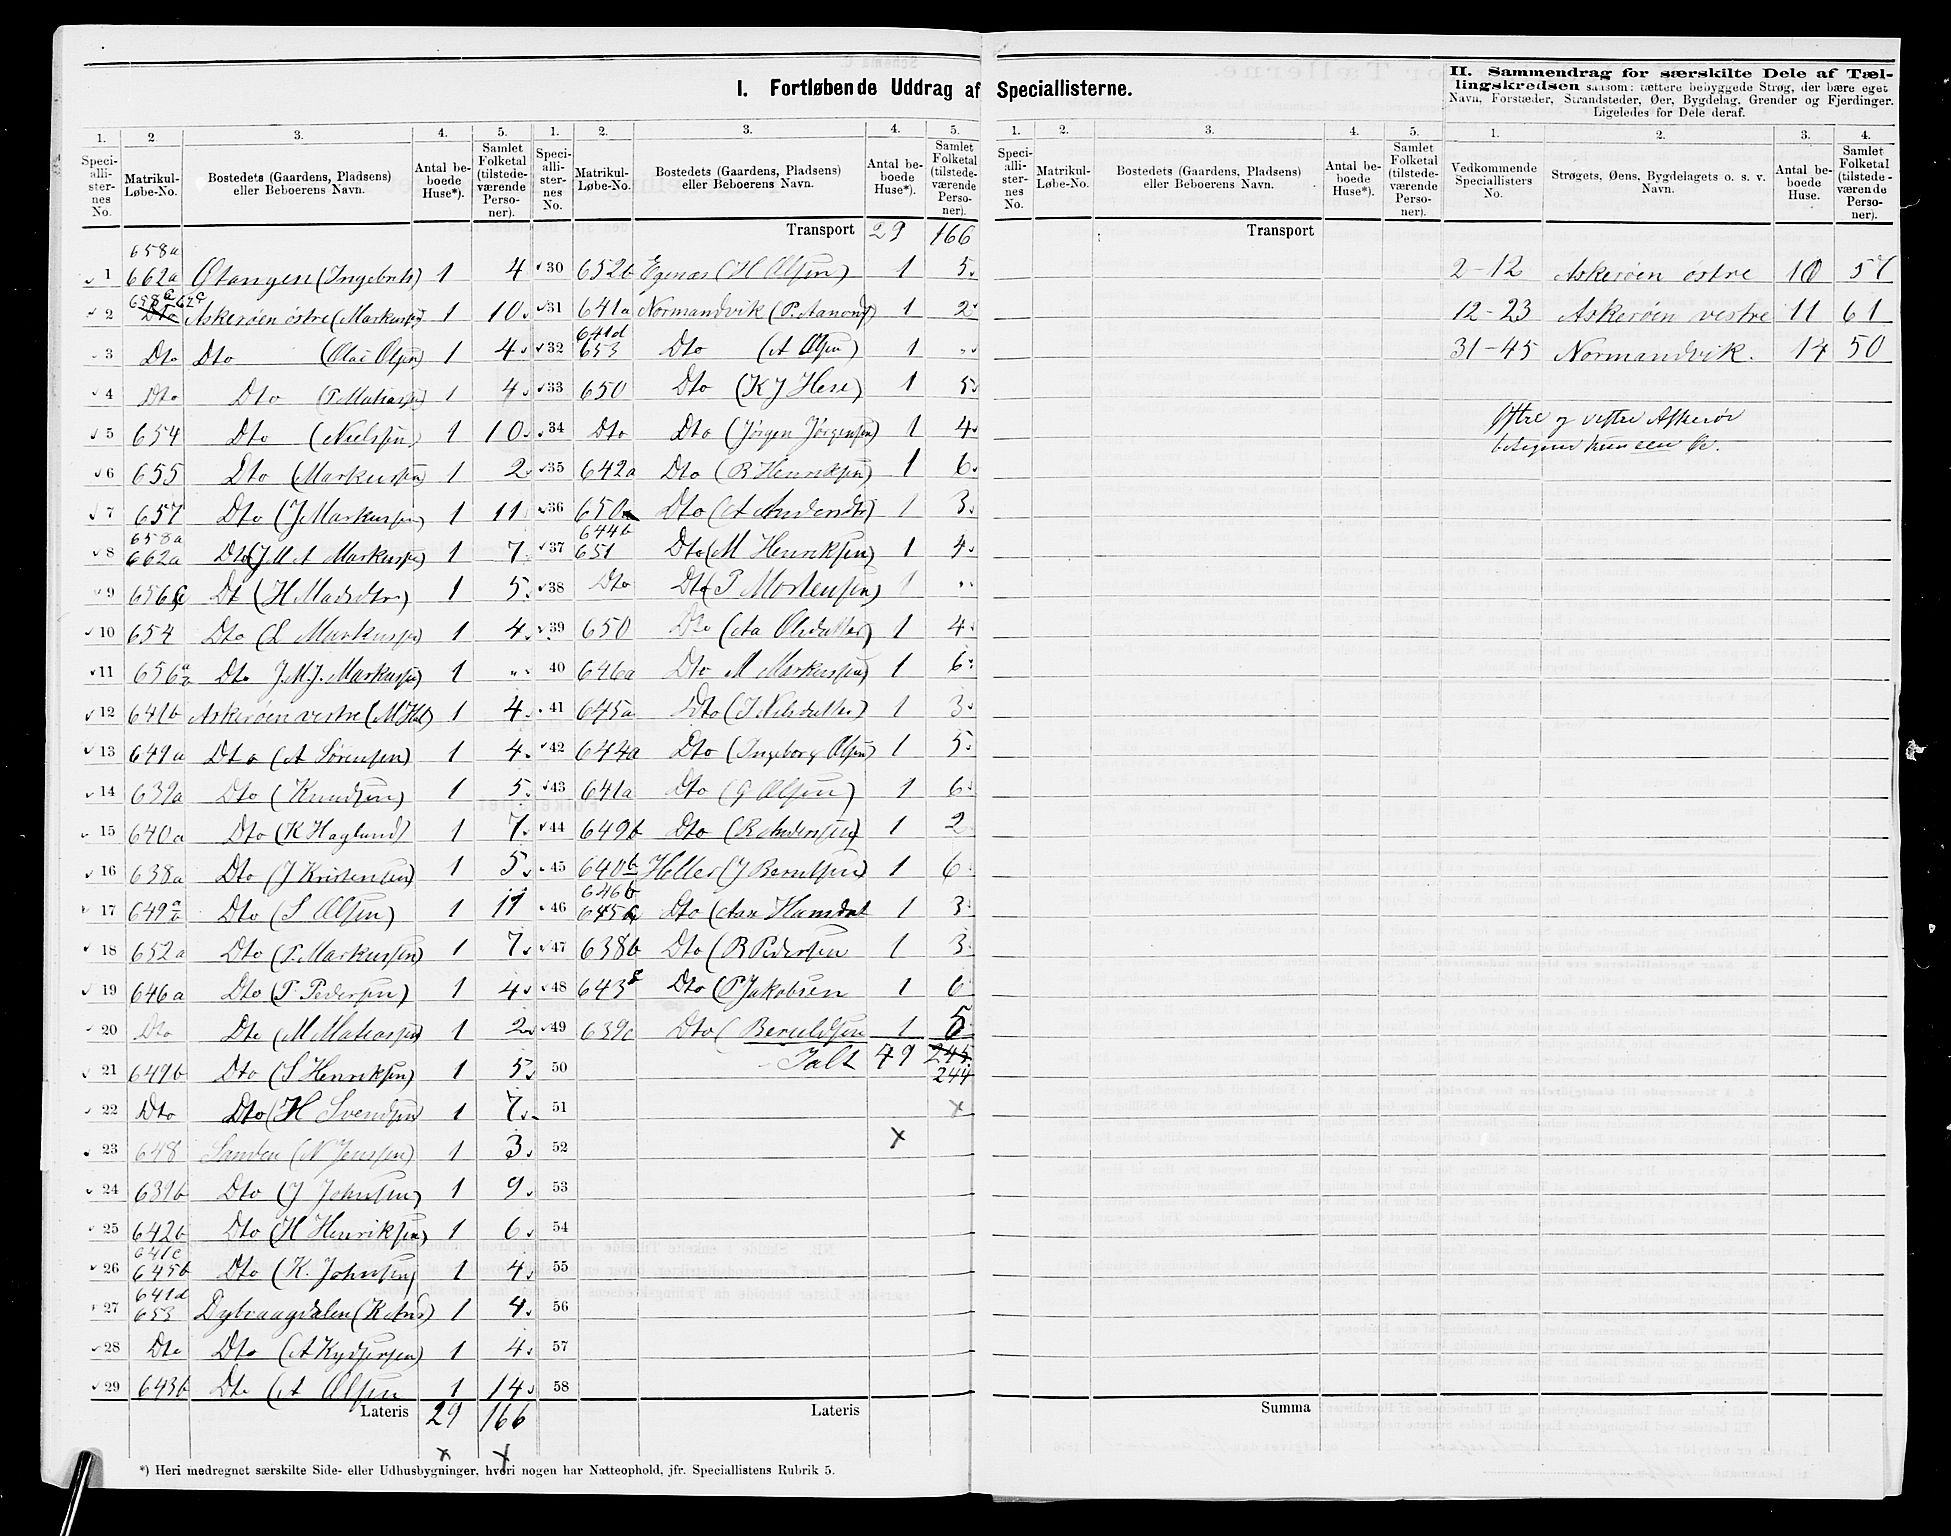 I. Fortløbende Uddrag af Speciallisterne.
II. Sammendrag for særskilte Dele af Tællingskredsen saasom: tættere bebyggede Strøg, der bære eget Navn, Forstæder, Strandsteder, Øer, Bygdelag, Grender og Fjerdinger. Ligeledes for Dele deraf.
1. 2. 3. 4. 5. 1. 2. 3. 4. 5.
Speciallisternes No. Matrikul-Løbe-No. Bostedets (Gaardens, Pladsens) eller Beboerens Navn. Antal beboede Huse*). Samlet Folketal (tilstedeværende Personer).
Speciallisternes No. Matrikul-Løbe-No. Bostedets (Gaardens, Pladsens) eller Beboerens Navn. Antal beboede Huse*). Samlet Folketal (tilstedeværende Personer).
658a
1 662a (Ingebrets) 1 4
2 Dto Askerøen østre (Markussen) 1 10
3 Dto Dto (Olai Olsen) 1 4
4 Dto Dto 1 4
5 654 Dto (Nielsen) 1 10
6 655 Dto (Markussen) 1 2
7 657 Dto (J Markussen) 1 11
658a
8 662a Dto (J M A Markussen) 1 7
9 656 Dt (H Madsdtr) 1 5
10 654 Dto (L Markussen) 1 4
11 656 Dto J.M.J. Markussen) 1 "
12 641b Askerøen vestre 1 4
13 649a Dto (A Sørensen) 1 4
14 639a Dto (Knudsen) 1 5
15 640a Dto (K Haglund) 1 7
16 638a Dto (J Kristensen) 1 5
17 649 a/b Dto (S Olsen) 1 11
18 652a Dto (P. Markussen) 1 7
19 646a Dto (P. Pedersen) 1 4
20 Dto Dto (M Matiassen) 1 2
21 649b Dto (S Henriksen) 1 5
22 Dto Dto (H Svendsen) 1 7
23 648 Sanden (N Jenssen) 1 3
24 639b Dto (J Johnsen) 1 9
25 642b Dto (H Henriksen) 1 6
641c
26 645b Dto (K. Johnsen) 1 4
641d
27 653 Dybvaagdalen (K And) 1 4
28 Dto Dto 1 4
29 643b Dto (A Olsen 1 14
Lateris 29 166
Transport 29 166
30 652b Egenæs (H Olsen) 1 5
31 641a Normandvik 1 2
641d
32 653 Dto (A Olsen) 1 "
33 650 Dto 1 5
34 Dto Dto (Jørgen Jørgensen) 1 4
35 642a Dto (B Henriksen) 1 6
36 650 Dto 1 3
644b
37 651 Dto (M Henriksen) 1 4
38 Dto Dto (P Mortensen) 1 "
39 650 Dto (Aa Olsdatter) 1 4
40 646a Dto M Markussen) 1 6
41 645a Dto 1 3
42 644a Dto (Ingeborg Olsen) 1 5
43 641a Dto (G Olsen) 1 6
44 649b Dto (B Andersen) 1 2
45 640b Helle (J Berntsen) 1 6
646b
46 645 Dto 1 3
47 638b Dto (B Pedersen 1 3
48 643 Dto (P Jakobsen 1 6
49 639c Dto ( 1 5
50 Ialt 49 245
244
51
52
53
54
55
56
57
58
Lateris
*) Heri medregnet særskilte Side- eller Udhusbygninger, hvori nogen har Natteophold, jfr. Speciallistens Rubrik 5.
1. 2. 3. 4. 5.
Speciallisternes No. Matrikul-Løbe-No. Bostedets (Gaardens, Pladsens) eller Beboerens Navn. Antal beboede Huse*). Samlet Folketal (tilstedeværende Personer).
Transport
Summa
1. 2. 3. 4.
Vedkommende Speciallisters No. Strøgets, Øens, Bygdelagets o. s. v. Navn. Antal beboede Huse. Samlet Folketal (tilstedeværende Personer).
2-12 Askerøen østre 10 57
12-23 Askerøen vestre 11 61
31-45 Normandvik. 14 50
Østre og vestre Askerø
betegner kun een Ø.